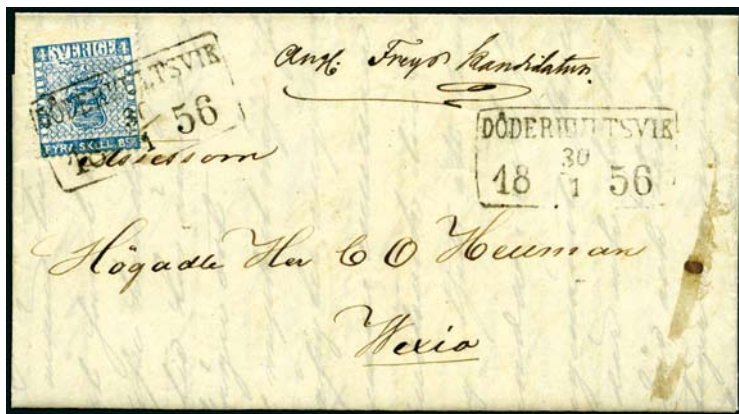 4 SVERIGE 4
FYRA SKILL. BCO
DÖDERHULTSVIK
30
18 1 56
Ang. Freys kandidatur.
DÖDERHULTSVIK
30
18 1 56
Assessorn
Högädle Her C O Heuman
Wexio